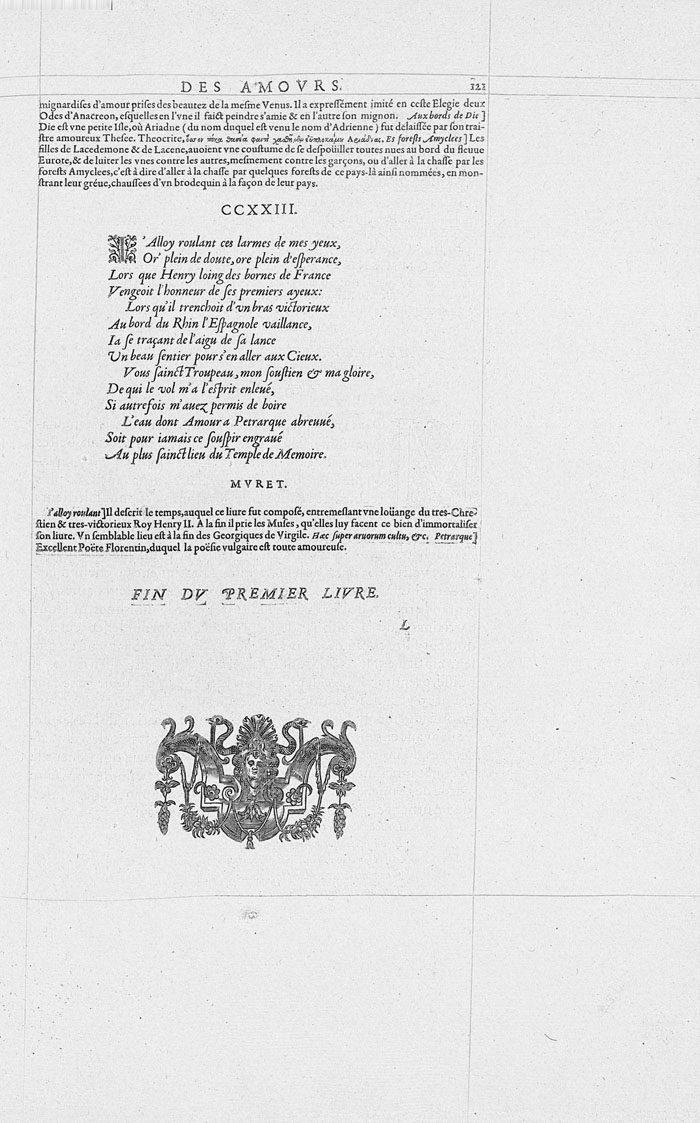 DES AMOVRS. 121
mignardises d'amour prises des beautez de la mesme Venus. Il a expressément imité en ceste Elegie deux
Odes d'Anacreon, esquelles en l'vne il faict peindre s'amie & en l'autre son mignon. Aux bords de Die]
Die est vne petite Isle, où Ariadne (du nom duquel est venu le nom d'Adrienne) fut delaissée par son trai-
stre amoureux Thesee. Theocrite, Es forests Amyclees] Les
filles de Lacedemone & de Lacene, auoient vne coustume de se despoüiller toutes nues au bord du fleuue
Eurote, & de luiter les vnes contre les autres, mesmement contre les garçons, ou d'aller à la chasse par les
forests Amyclees, c'est à dire d'aller à la chasse par quelques forests de ce pays-là ainsi nommées, en mon-
strant leur gréue, chaussées d'vn brodequin à la façon de leur pays.
CCXXIII.
I'Alloy roulant ces larmes de mes yeux,
Or' plein de doute, ore plein d'esperance,
Lors que Henry loing des bornes de France
Vengeoit l'honneur de ses premiers ayeux:
Lors qu'il trenchoit d'vn bras victorieux
Au bord du Rhin l'Espagnole vaillance,
Ia se traçant de l'aigu de sa lance
Vn beau sentier pour s'en aller aux Cieux.
Vous sainct Troupeau, mon soustien & ma gloire,
De qui le vol m'a l'esprit enleué,
Si autrefois m'auez permis de boire
L'eau dont Amour a Petrarque abreuué,
Soit pour iamais ce souspir engraué
Au plus sainct lieu du Temple de Memoire.
MVRET.
I'alloy roulant] Il descrit le temps, auquel ce liure fut composé, entremeslant vne loüange du tres-Chre-
stien & tres-victorieux Roy Henry II. A la fin il prie les Muses, qu'elles luy facent ce bien d'immortaliser
son liure. Vn semblable lieu est à la fin des Georgiques de Virgile. Hæc super aruorum cultu, &c. Petrarque]
Excellent Poëte Florentin, duquel la poësie vulgaire est toute amoureuse.
FIN DV PREMIER LIVRE.
L